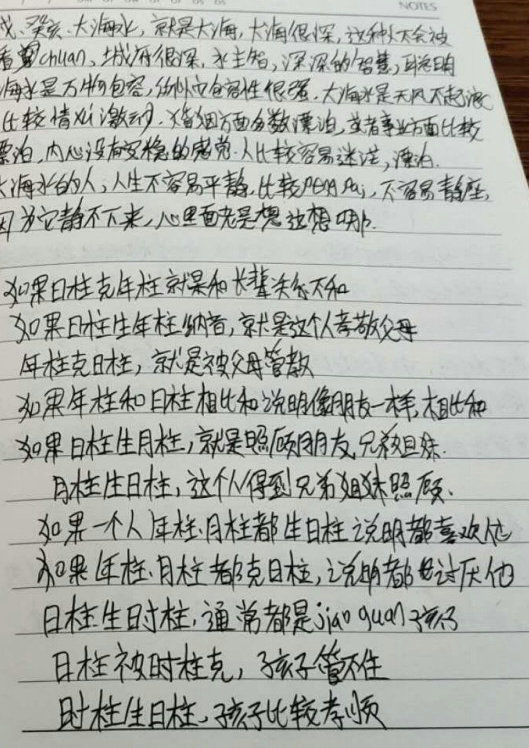 NOTES
戌、癸亥、大海水，就是大海，大海很深，这种人不会被
看穿chuan，城府很深，水主智，深深的智慧，
海水是万物包容，包容性很强。大海水是无风不起浪
比较情绪激动。婚姻方面多数漂泊，或者事业方面比较
漂泊，内心没有安稳的感觉。人比较容易迷茫，漂泊。
大海水的人，人生不容易平静，比较，不容易静座，
因为它静不下来，心里面老是想这想哪。
如果日柱克年柱就是和长辈关系不和
如果日柱生年柱纳音，就是这个人孝敬父母
年柱克日柱，就是被父母管教
如果年柱和日柱相比和说明像朋友一样，相比和
如果日柱生月柱，就是照顾朋友，兄弟姐妹.
月柱生日柱，这个人得到兄弟姐妹照顾、
如果一个人年柱.月柱都生日柱说明都喜欢他
如果年柱.月柱都克日柱，说明都讨厌他
日柱生时柱，通常都是jiao guan孩子
日柱被时柱克，孩子管不住
时柱生日柱，孩子比较孝顺